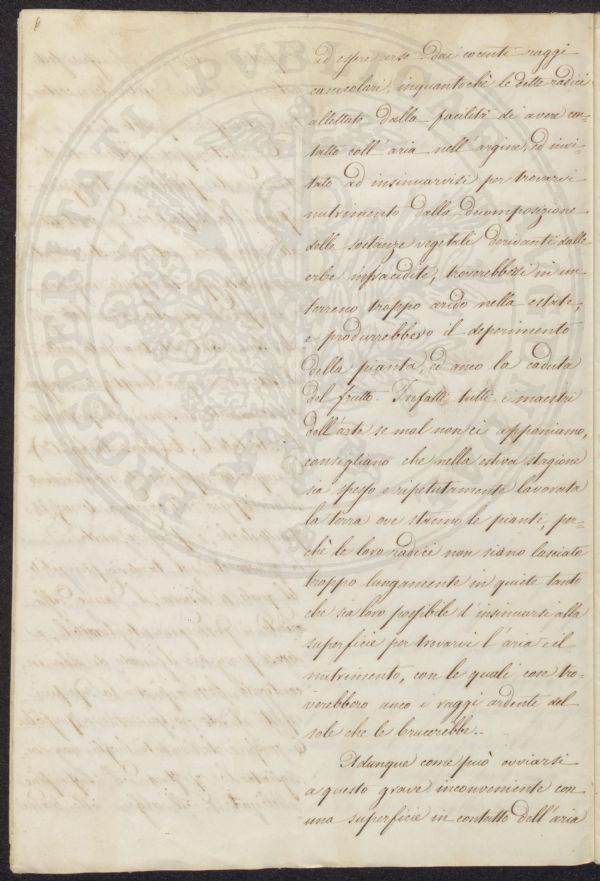 6
ad essere arse dai cocenti raggi
canicolari, inquantochè le dette radici
allettate dalla facilità di avere con-
tatto coll' aria nell' argine, ed invi-
tate ad insinuarvisi per trovarvi
nutrimento dalla decomposizione
delle sostanze vegetali derivanti dalle
erbe infracidite, troverebbersi in un
terreno troppo arido nella estate,
e produrrebbero il deperimento
della pianta, ed anco la caduta
del frutto. Infatti tutti i maestri
dell' arte se mal non ci apponiamo,
consigliano che nella estiva stagione
sia spesso e ripetutamente lavorata
la terra ove stanno le piante, per-
chè le loro radici non siano lasciate
troppo lungamente in quiete tanto
che sia loro possibile d' insinuarsi alla
superficie per trovarvi l' aria e il
nutrimento, con le quali cose tro-
verebbero anco i raggi ardenti del
sole che le brucerebbe..
Adunque come può ovviarsi
a questo grave inconveniente con
una superficie in contatto dell' aria
PROSPERITATI PVBLICAE